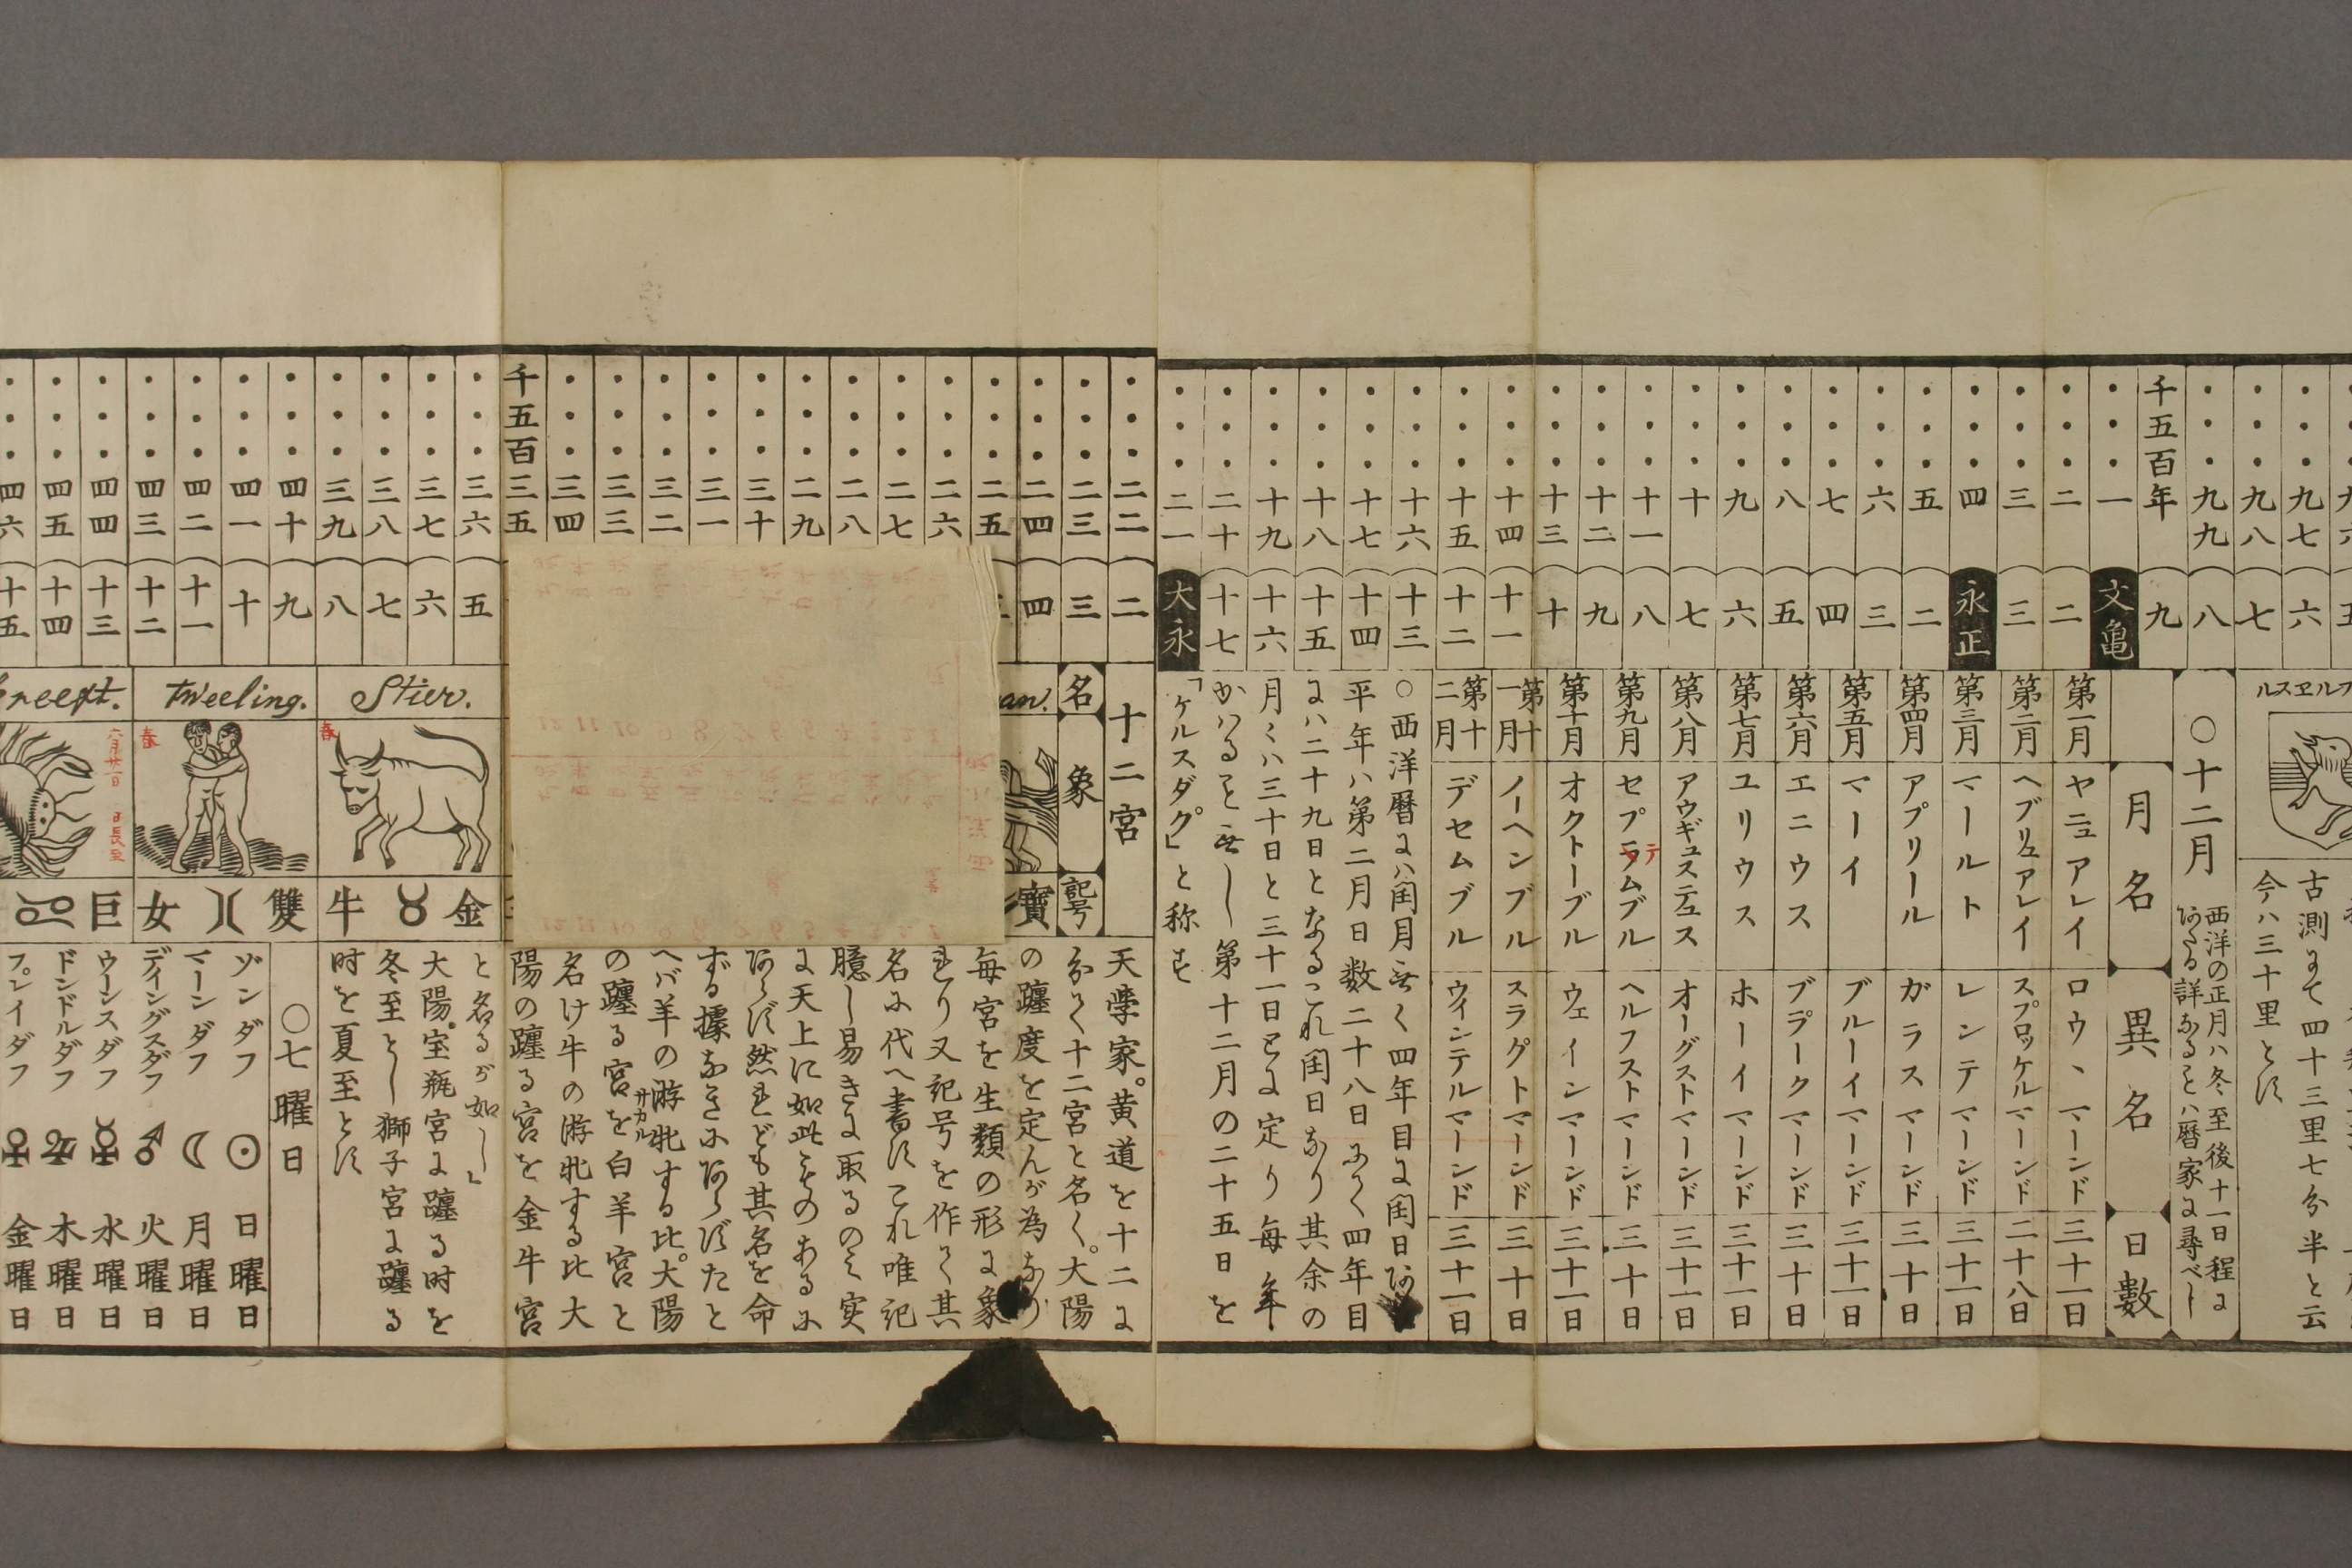 ・・・九七 六
・・・九八 七
・・・九九 八
千五百年 九
・・・一 文亀
・・・二 二
・・・三 三
・・・四 永正
・・・五 二
・・・六 三
・・・七 四
・・・八 五
・・・九 六
・・・十 七
・・・十一 八
・・・十二 九
・・・十三 十
・・・十四 十一
・・・十五 十二
・・・十六 十三
・・・十七 十四
・・・十八 十五
・・・十九 十六
・・・二十 十七
・・・二一 大永
・・・二二 二
・・・二三 三
・・・二四 四
・・・二五
・・・二六
・・・二七
・・・二八
・・・二九
・・・三十
・・・三一
・・・三二
・・・三三
・・・三四
千五百三五
・・・三六 五
・・・三七 六
・・・三八 七
・・・三九 八
・・・四十 九
・・・四一 十
・・・四二 十一
・・・四三 十二
・・・四四 十三
・・・四五 十四
・・・四六 十五
古測にて四十三里七分半と云
今ハ三十里とす
〇十二月
西洋の正月ハ冬至後十一日程に
あたる詳なることハ暦家に尋べし
月名 異名 日數
第一月 ヤニュアレイ ロウ、マーンド 三十一日
第二月 ヘブリュアレイ スプロッケルマーンド 二十八日
第三月 マールト レンテマーンド 三十一日
第四月 アプリール ガラスマーンド 三十日
第五月 マーイ ブルーイマーンド 三十一日
第六月 エニウス ブラークマーンド 三十日
第七月 ユリウス ホーイマーンド 三十一日
第八月 アウギュステュス オーグストマーンド 三十一日
第九月 セプテムブル ヘルフストマーンド 三十日
第十月 オクトーブル ウェインマーンド 三十一日
第十一月 ノーヘンブル スラグトマーンド 三十日
第十二月 デセムブル ウインテルマーンド 三十一日
〇西洋暦にハ閏月無く四年目に閏日あり
平年ハ第二月日数二十八日にて四年目
にハ二十九日となるこれ閏日なり其余の
月々ハ三十日と三十一日とに定り毎年
かハること無し第十二月の二十五日を
「ケルスダグ」と称す
十二宮
名 象 記号
寶
天学家。黄道を十二に
分て十二宮と名く。大陽
の躔度を定んが為なり
毎宮を生類の形に象
れり又記号を作て其
名に代へ書すこれ唯記
臆し易きに取るのミ実
に天上に如此ものあるに
あらず然れども其名を命
ずる據なきにあらずたと
へバ羊の游牝サカルする比。大陽
の躔る宮を白羊宮と
名け牛の游牝する比大
陽の躔る宮を金牛宮
と名るが如し」
大陽。宝瓶宮に躔る時を
冬至とし獅子宮に躔る
时を夏至とす
Stier.
春
金♉牛
Tweeling.
春
雙 女
六月廿一日 日長至
巨
〇七曜日
ゾンダフ ☉ 日曜日
マーンダフ ☾ 月曜日
ディングスダフ ♂ 火曜日
ウーンスダフ ☿ 水曜日
ドンドルダフ ♃ 木曜日
フレイダフ ♀ 金曜日